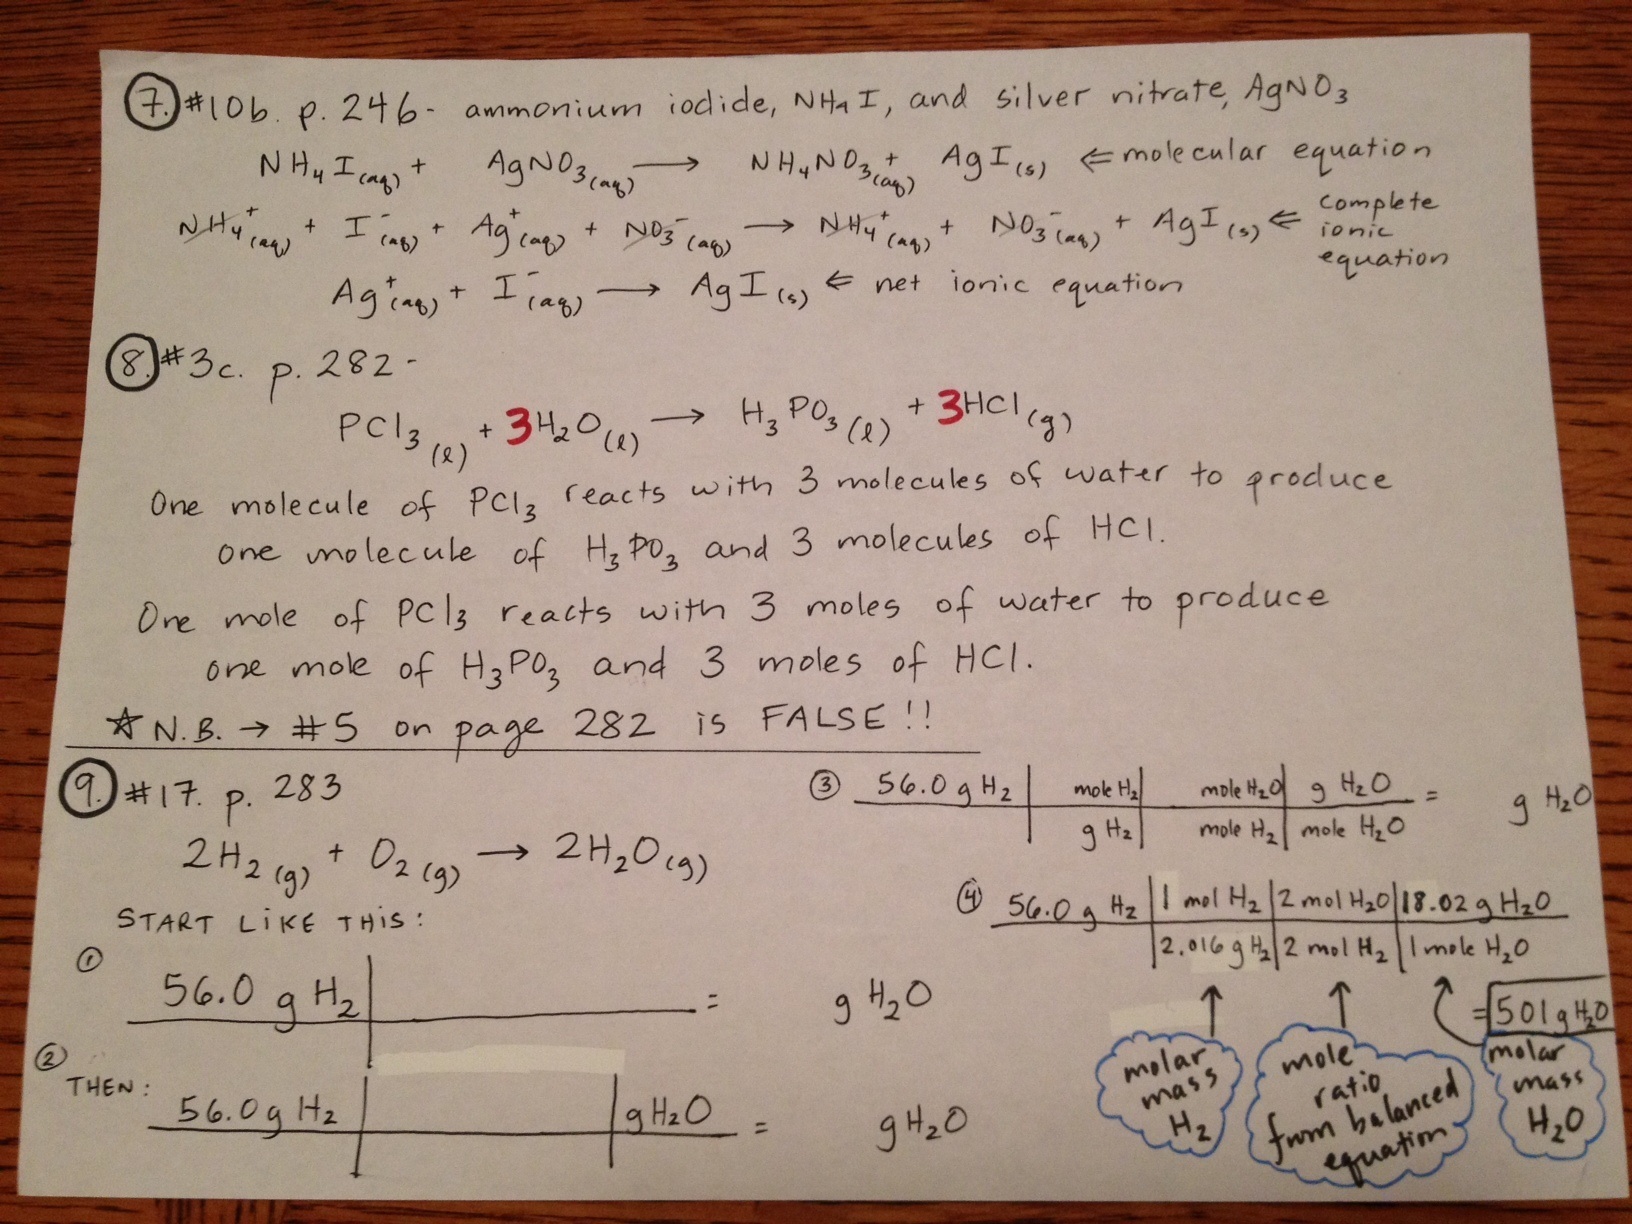 7. #10b. p. 246 - ammonium iodide, NH4I, and silver nitrate, AgNO3
NH4I(aq) + AgNO3(aq) → NH4NO3(aq) + AgI(s) ⇐ molecular equation
NH4+(aq) + I-(aq) + Ag+(aq) + NO3-(aq) → NH4+(aq) + NO3-(aq) + AgI(s) ⇐ complete ionic equation
Ag+(aq) + I-(aq) → AgI(s) ⇐ net ionic equation
8. #3c. p. 282 -
PCl3(l) + 3H2O(l) → H3PO3(l) + 3HCl(g)
One molecule of PCl3 reacts with 3 molecules of water to produce
one molecule of H3PO3 and 3 molecules of HCl.
One mole of PCl3 reacts with 3 moles of water to produce
one mole of H3PO3 and 3 moles of HCl.
☆ N.B. → #5 on page 282 is FALSE!!
9. #17. p. 283
2H2(g) + O2(g) → 2H2O(g)
START LIKE THIS:
① 56.0 g H2 | = g H2O
② THEN:
56.0g H2 | | gH2O = gH2O
③ 56.0 g H2 | mole H2 | mole H2O | g H2O = g H2O
g H2 | mole H2 | mole H2O
④ 56.0 g H2 | 1 mol H2 | 2 mol H2O | 18.02 g H2O
2.016 g H2 | 2 mol H2 | 1 mole H2O
= 501 g H2O
molar mass H2
mole ratio from balanced equation
molar mass H2O